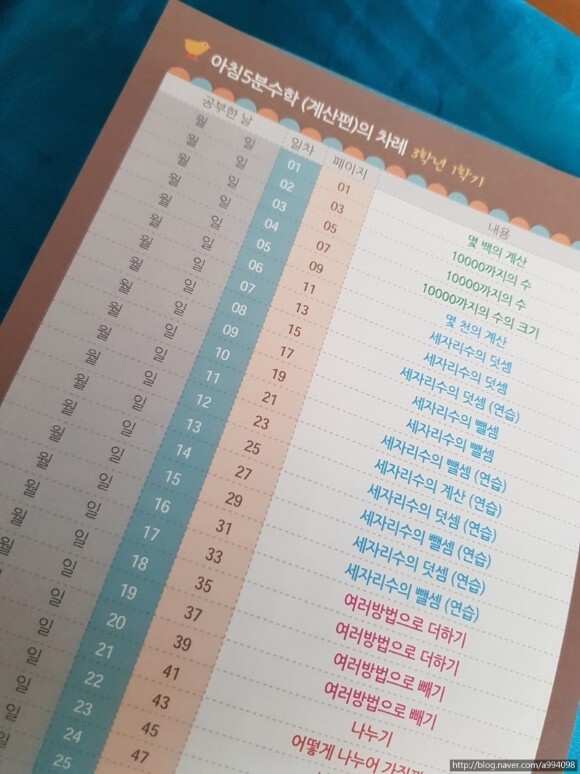 아침5분수학 (계산편)의 차례 3학년 1학기
공부한 날 일차 페이지 내용
월 일 01 01 몇 백의 계산
월 일 02 03 10000까지의 수
월 일 03 05 10000까지의 수
월 일 04 07 10000까지의 수의 크기
월 일 05 09 몇 천의 계산
월 일 06 11 세자리수의 덧셈
월 일 07 13 세자리수의 덧셈
월 일 08 15 세자리수의 덧셈 (연습)
월 일 09 17 세자리수의 뺄셈
월 일 10 19 세자리수의 뺄셈
월 일 11 21 세자리수의 뺄셈 (연습)
월 일 12 23 세자리수의 계산 (연습)
월 일 13 25 세자리수의 덧셈 (연습)
월 일 14 27 세자리수의 뺄셈 (연습)
월 일 15 29 세자리수의 덧셈 (연습)
월 일 16 31 세자리수의 뺄셈 (연습)
월 일 17 33 여러방법으로 더하기
월 일 18 35 여러방법으로 더하기
월 일 19 37 여러방법으로 빼기
일 20 39 여러방법으로 빼기
일 21 41 나누기
일 22 43 어떻게 나누어
일 23 45
일 24 47
일 25
http://blog.naver.com/a994098